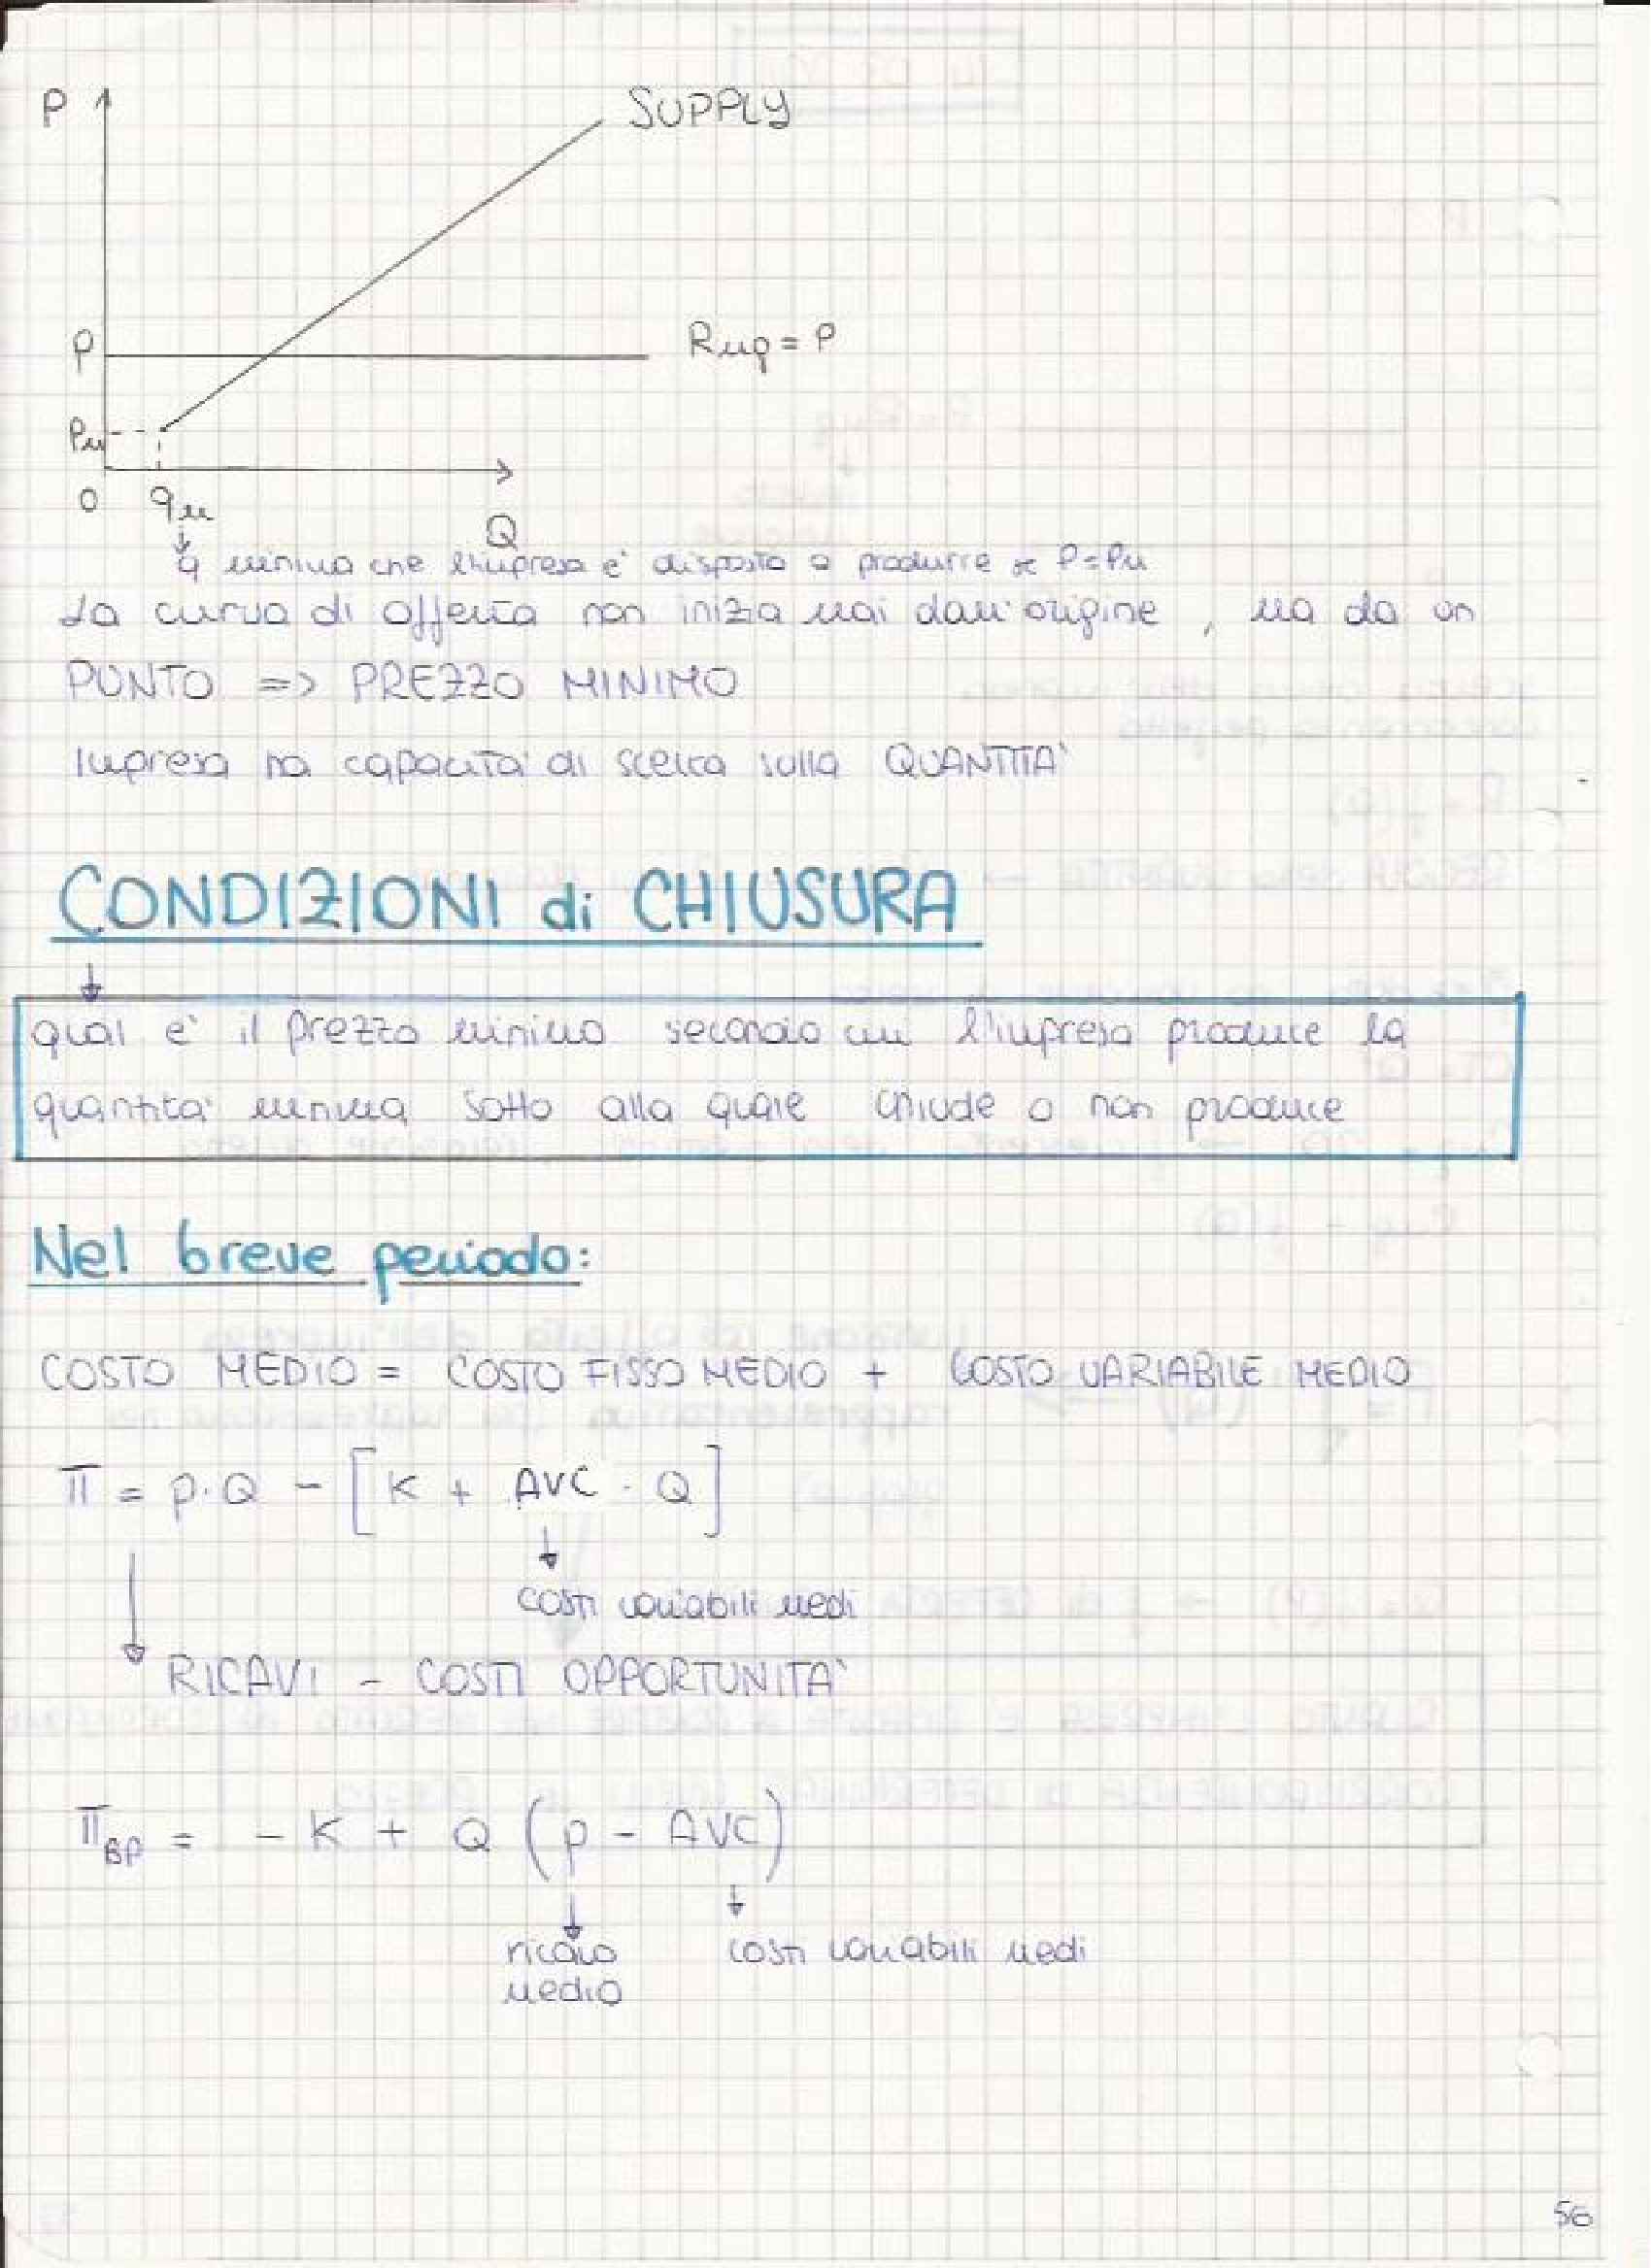 P
SUPPLY
P
Rmg = P
Pm
0
qm
Q
q minima che l'impresa è disposta a produrre se P=Pm
La curva di offerta non inizia mai dall'origine, ma da un
PUNTO => PREZZO MINIMO
Impresa ha capacità di scelta sulla QUANTITA'
CONDIZIONI di CHIUSURA
qual è il prezzo minimo secondo cui l'impresa produce la
quantità minima sotto alla quale chiude o non produce
Nel breve periodo:
COSTO MEDIO = COSTO FISSO MEDIO + COSTO VARIABILE MEDIO
π = p·Q - [K + AVC · Q]
costi variabili medi
RICAVI - COSTI OPPORTUNITA'
πBP = - K + Q (p - AVC)
ricavo
medio
costi variabili medi
56